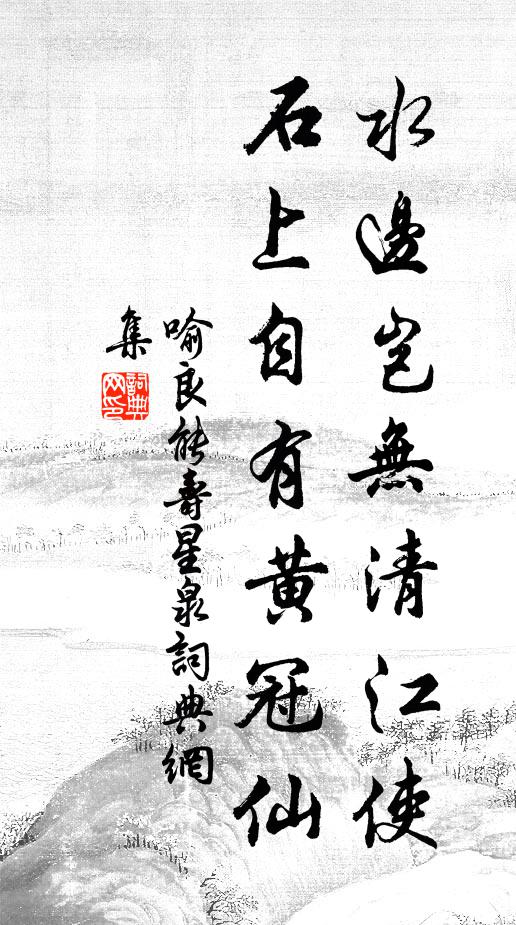 水邊岂無清江使
石上自有黃冠仙
喻良能壽星泉詞典網
集
詞典
网印